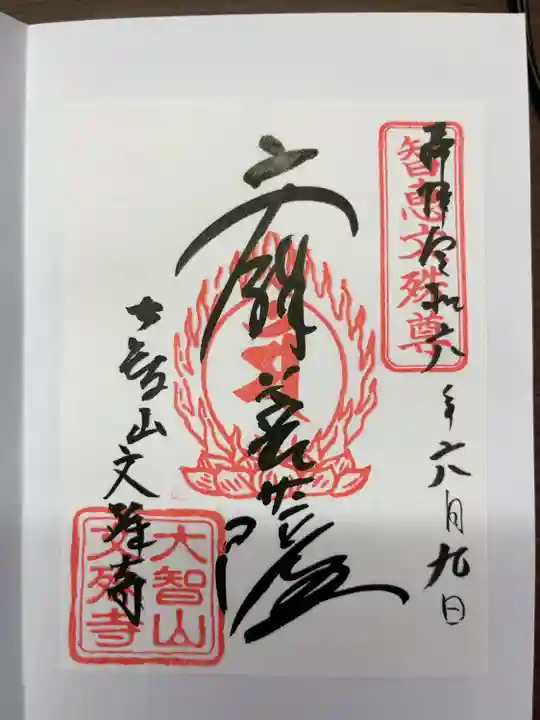 奉拝 令和六年六月九日
智恵文殊尊
文殊菩薩
大智山文殊寺
大智山
文殊寺